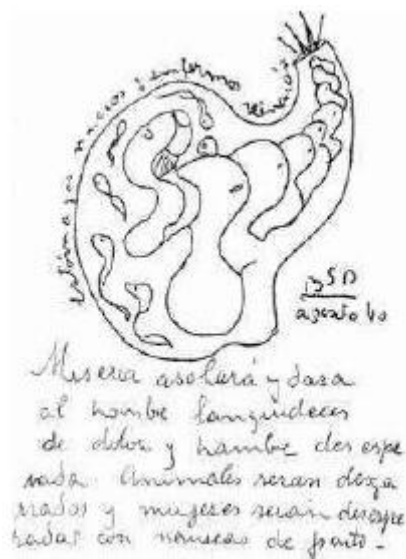 estómagos vacios y enfermos
BSP
agosto 40
Miseria asolará y dara
al hombre languideces
de dolor y hambre desespe
rada. Animales seran desga
rrados y mujeres seran desespe
radas con nauseas de parto.-